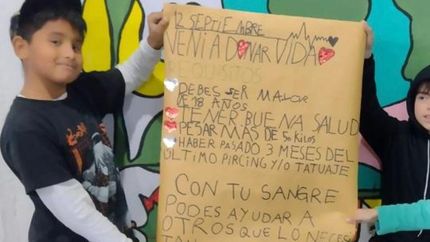 12 SEPTIEMBRE
VENI A DONAR VIDA
REQUISITOS
DEBES SER MAYOR
DE 18 AÑOS
TENER BUENA SALUD
PESAR MÁS DE 50 KILOS
HABER PASADO 3 MESES DEL
ÚLTIMO PIRCING Y/O TATUAJE
CON TU SANGRE
PODES AYUDAR A
OTROS QUE LO NECES